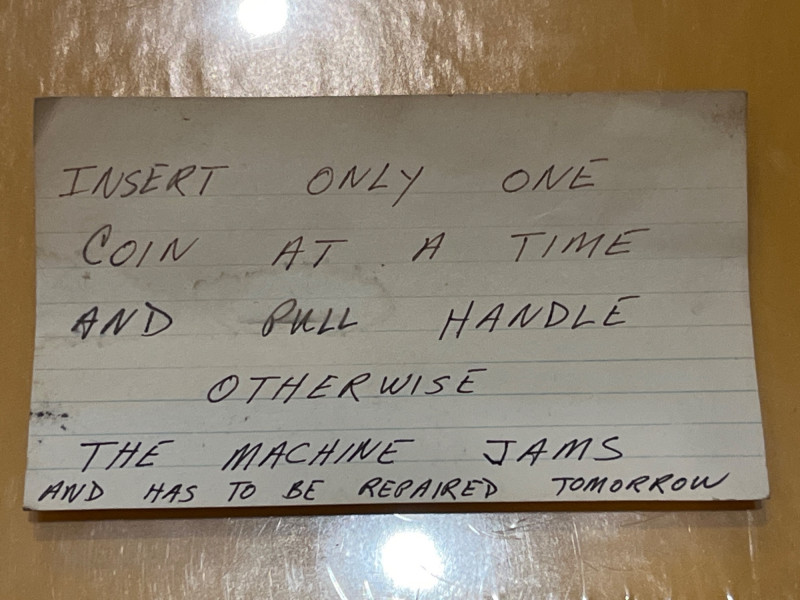 INSERT ONLY ONE
COIN AT A TIME
AND PULL HANDLE
OTHERWISE
THE MACHINE JAMS
AND HAS TO BE REPAIRED TOMORROW